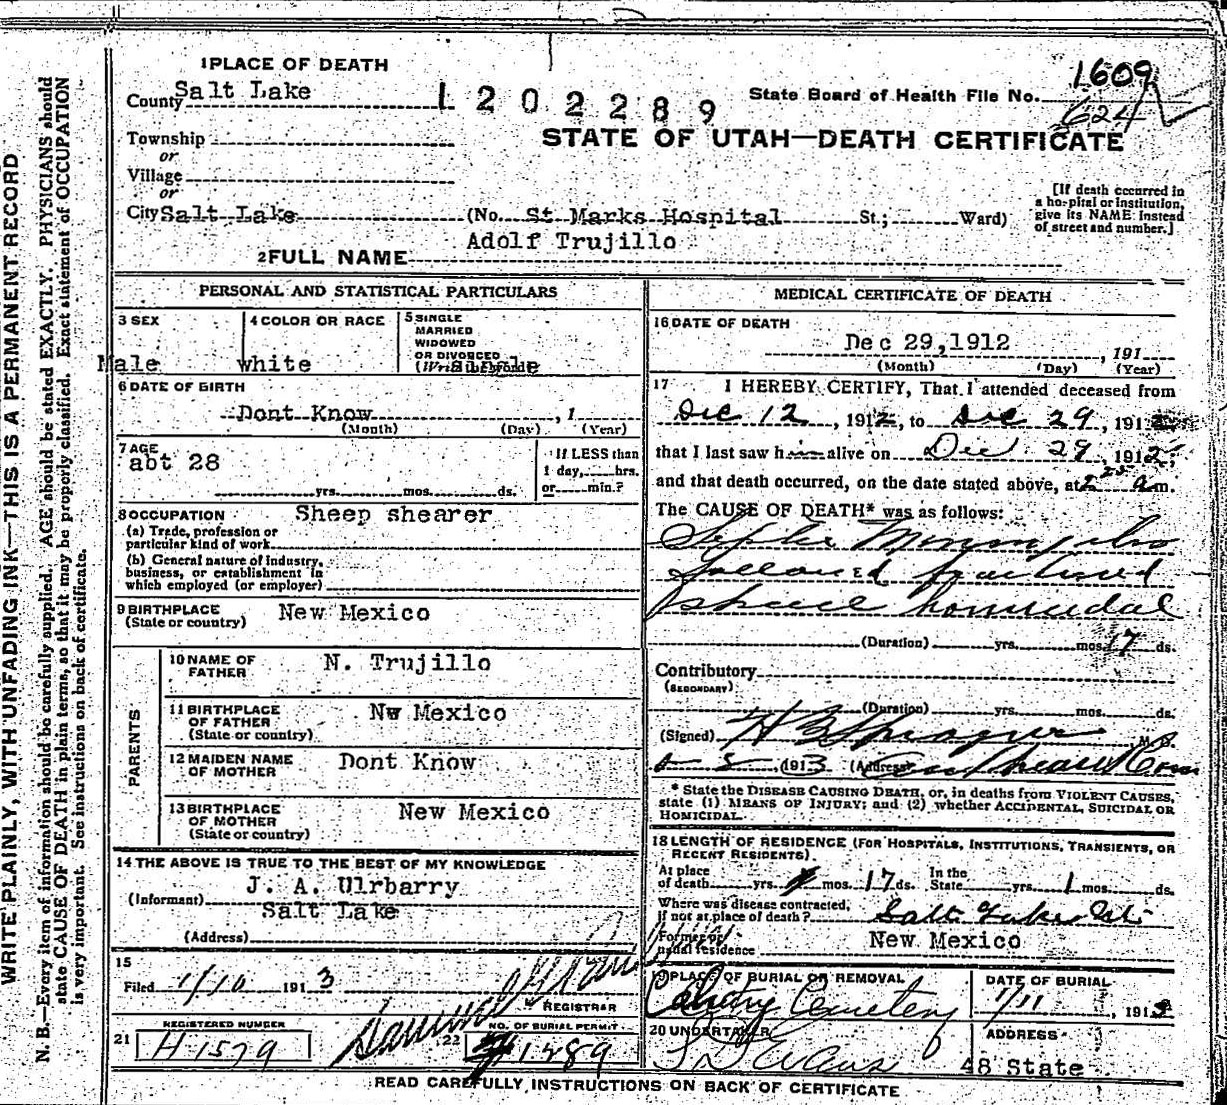 1 PLACE OF DEATH
County Salt Lake
1 2 0 2 2 8 9
State Board of Health File No. 1609
624
STATE OF UTAH—DEATH CERTIFICATE
Township
or
Village
or
City Salt Lake (No. St Marks Hospital St.; Ward)
[If death occurred in a hospital or institution, give its NAME instead of street and number.]
2 FULL NAME Adolf Trujillo
PERSONAL AND STATISTICAL PARTICULARS
3 SEX
Male
4 COLOR OR RACE
white
5 SINGLE
MARRIED
WIDOWED
OR DIVORCED
6 DATE OF BIRTH
Dont Know , 1
(Month) (Day) (Year)
7 AGE
abt 28
yrs. mos. ds.
If LESS than
1 day, hrs.
or min.?
8 OCCUPATION Sheep shearer
(a) Trade, profession or
particular kind of work
(b) General nature of industry,
business, or establishment in
which employed (or employer)
9 BIRTHPLACE New Mexico
(State or country)
PARENTS
10 NAME OF
FATHER N. Trujillo
11 BIRTHPLACE
OF FATHER
(State or country) Nw Mexico
12 MAIDEN NAME
OF MOTHER Dont Know
13 BIRTHPLACE
OF MOTHER
(State or country) New Mexico
14 THE ABOVE IS TRUE TO THE BEST OF MY KNOWLEDGE
(Informant) J. A. Ulrbarry
Salt Lake
(Address)
15
Filed 1/10 1913
REGISTRAR
REGISTERED NUMBER
21 H1579
NO. OF BURIAL PERMIT
22 1489
MEDICAL CERTIFICATE OF DEATH
16 DATE OF DEATH
Dec 29,1912 , 191
(Month) (Day) (Year)
17 I HEREBY CERTIFY, That I attended deceased from
Dec 12, 1912, to Dec 29, 1912
that I last saw him alive on Dec 29, 1912,
and that death occurred, on the date stated above, at 2 25 a m.
The CAUSE OF DEATH* was as follows:
followed fractured
homicidal
(Duration) yrs. mos. 17 ds.
Contributory
(SECONDARY)
(Duration) yrs. mos. ds.
(Signed) H B Sprague M. D.
1913 (Address)
* State the DISEASE CAUSING DEATH, or, in deaths from VIOLENT CAUSES,
state (1) MEANS OF INJURY; and (2) whether ACCIDENTAL, SUICIDAL OR
HOMICIDAL.
18 LENGTH OF RESIDENCE (FOR HOSPITALS, INSTITUTIONS, TRANSIENTS, OR
RECENT RESIDENTS).
At place
of death yrs. mos. 17 ds.
In the
State yrs. 1 mos. ds.
Where was disease contracted,
if not at place of death? Salt Lake
Former or
usual residence New Mexico
19 PLACE OF BURIAL OR REMOVAL
Calvary Cemetery
DATE OF BURIAL
1/11, 1913
20 UNDERTAKER
Evans
ADDRESS
48 State
READ CAREFULLY INSTRUCTIONS ON BACK OF CERTIFICATE
WRITE PLAINLY, WITH UNFADING INK—THIS IS A PERMANENT RECORD
N. B.—Every item of information should be carefully supplied. AGE should be stated EXACTLY. PHYSICIANS should
state CAUSE OF DEATH in plain terms, so that it may be properly classified. Exact statement of OCCUPATION
is very important. See instructions on back of certificate.